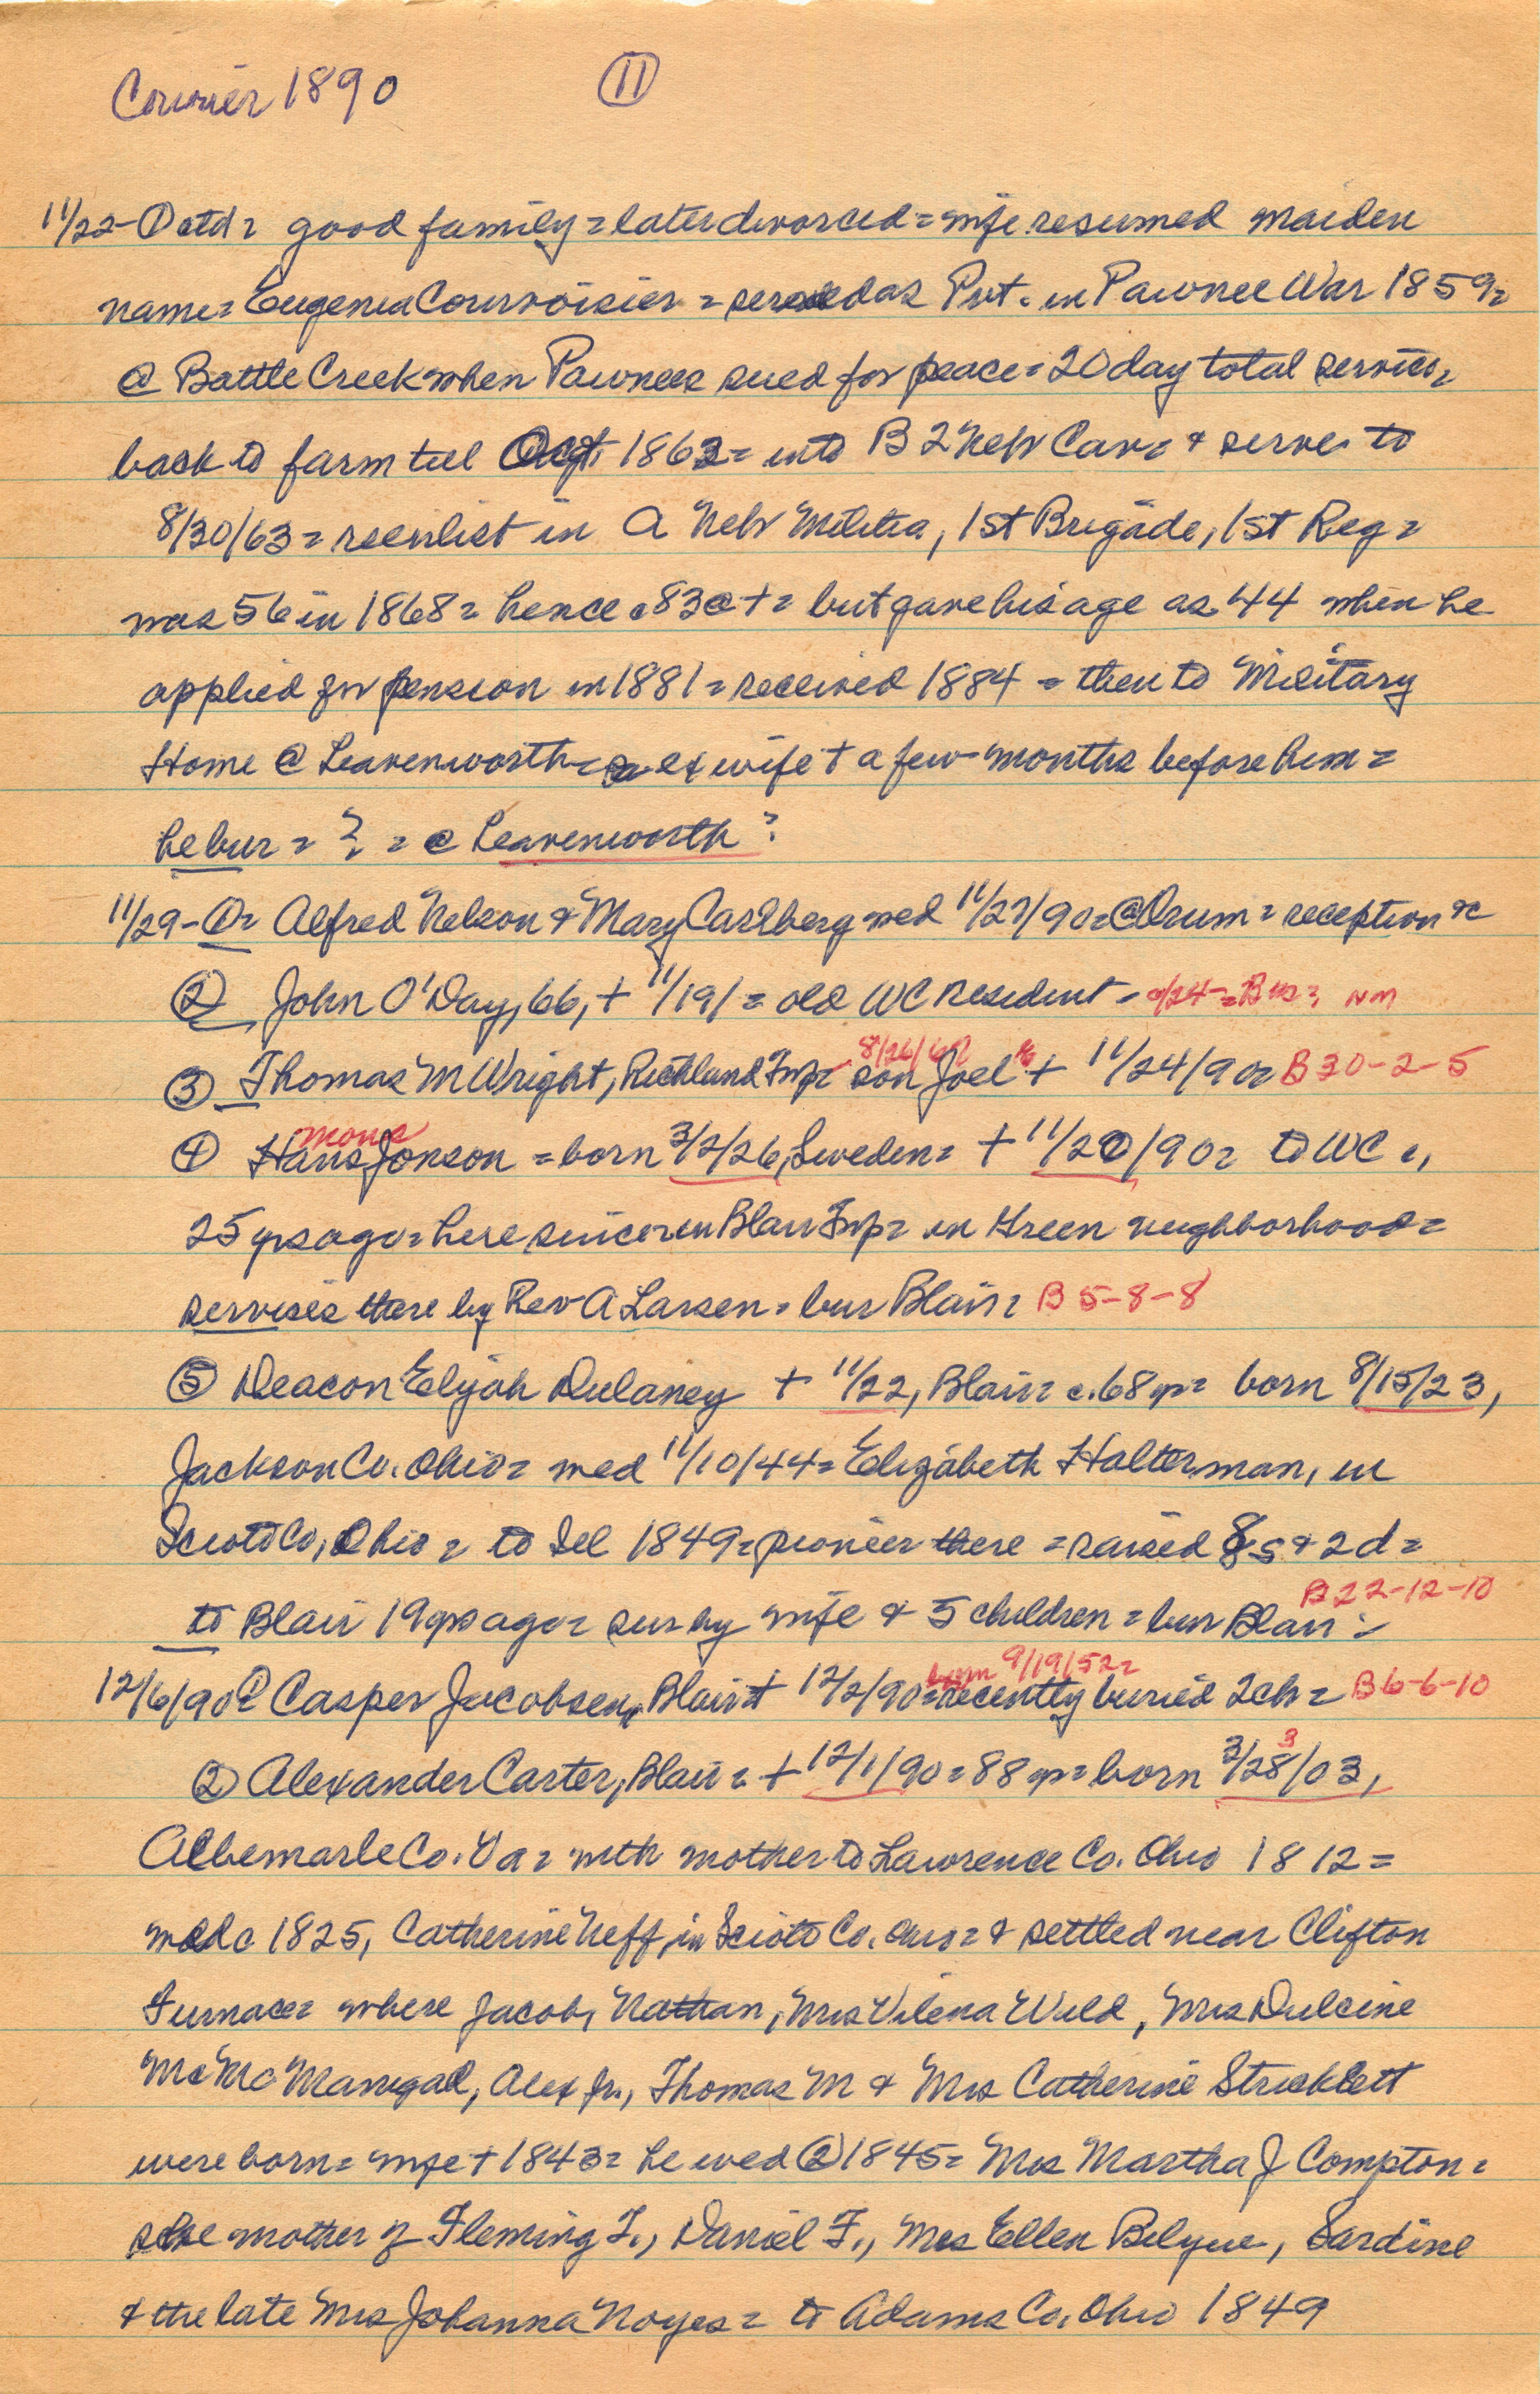 Courier 1890 (11)
11/22- ① ctd = good family = later divorced = wife resumed maiden
name = Eugenia Courvoisier = served as Pvt. in Pawnee War 1859 =
@ Battle Creek when Pawnees sued for peace = 20 day total service =
back to farm till Oct 1862 = into B 2 Neb Cav = & serves to
8/30/63 = reenlist in A Neb Militia, 1st Brigade, 1st Reg =
was 56 in 1868 = hence c 83 @ + = but gave his age as 44 when he
applied for pension in 1881 = received 1884 = then to Military
Home @ Leavenworth = ex wife + a few months before him =
he bur = ? = @ Leavenworth ?
11/29 - ① = Alfred Nelson & Mary Carlberg wed 11/27/90 = @ Orum = reception &c
② John O'Day, 66, + 11/19/ = old WC resident - 0/24 = B NM
8/26/69
③ Thomas M Wright, Richland Twp = son Joel + 11/24/90 = B 30-2-5
mons
④ Hans Jonson = born 3/2/26, Sweden = + 11/20/90 = to WC c,
25 yrs ago = here since = in Blair Twp = in Green neighborhood =
services there by Rev A Larsen = bur Blair = B 5-8-8
⑤ Deacon Elijah Dulaney + 11/22, Blair = c. 68 yr = born 8/15/23,
Jackson Co. Ohio = wed 11/10/44 = Elizabeth Halterman, in
Scioto Co, Ohio = to Ill 1849 = pioneer there = raised 8 s & 2 d =
B 22-12-10
to Blair 19 yrs ago = sur by wife & 5 children = bur Blair =
born 9/19/52 =
12/6/90 ① Casper Jacobsen, Blair + 12/2/90 = recently buried 2 ch = B 6-6-10
3
② Alexander Carter, Blair = + 12/1/90 = 88 yr = born 3/28/03,
Albemarle Co. Va = with mother to Lawrence Co. Ohio 1812 =
wed c 1825, Catherine Neff, in Scioto Co. Ohio = & settled near Clifton
Furnace = where Jacob, Nathan, Mrs Vilena Wild, Mrs Dulcine
Mc Mc Manigal, Alex Jr., Thomas M & Mrs Catherine Stricklett
were born = wife + 1843 = he wed ② 1845 = Mrs Martha J Compton =
she mother of Fleming F., Daniel F., Mrs Ellen Bilyeu, Sardine
& the late Mrs Johanna Noyes = to Adams Co. Ohio 1849